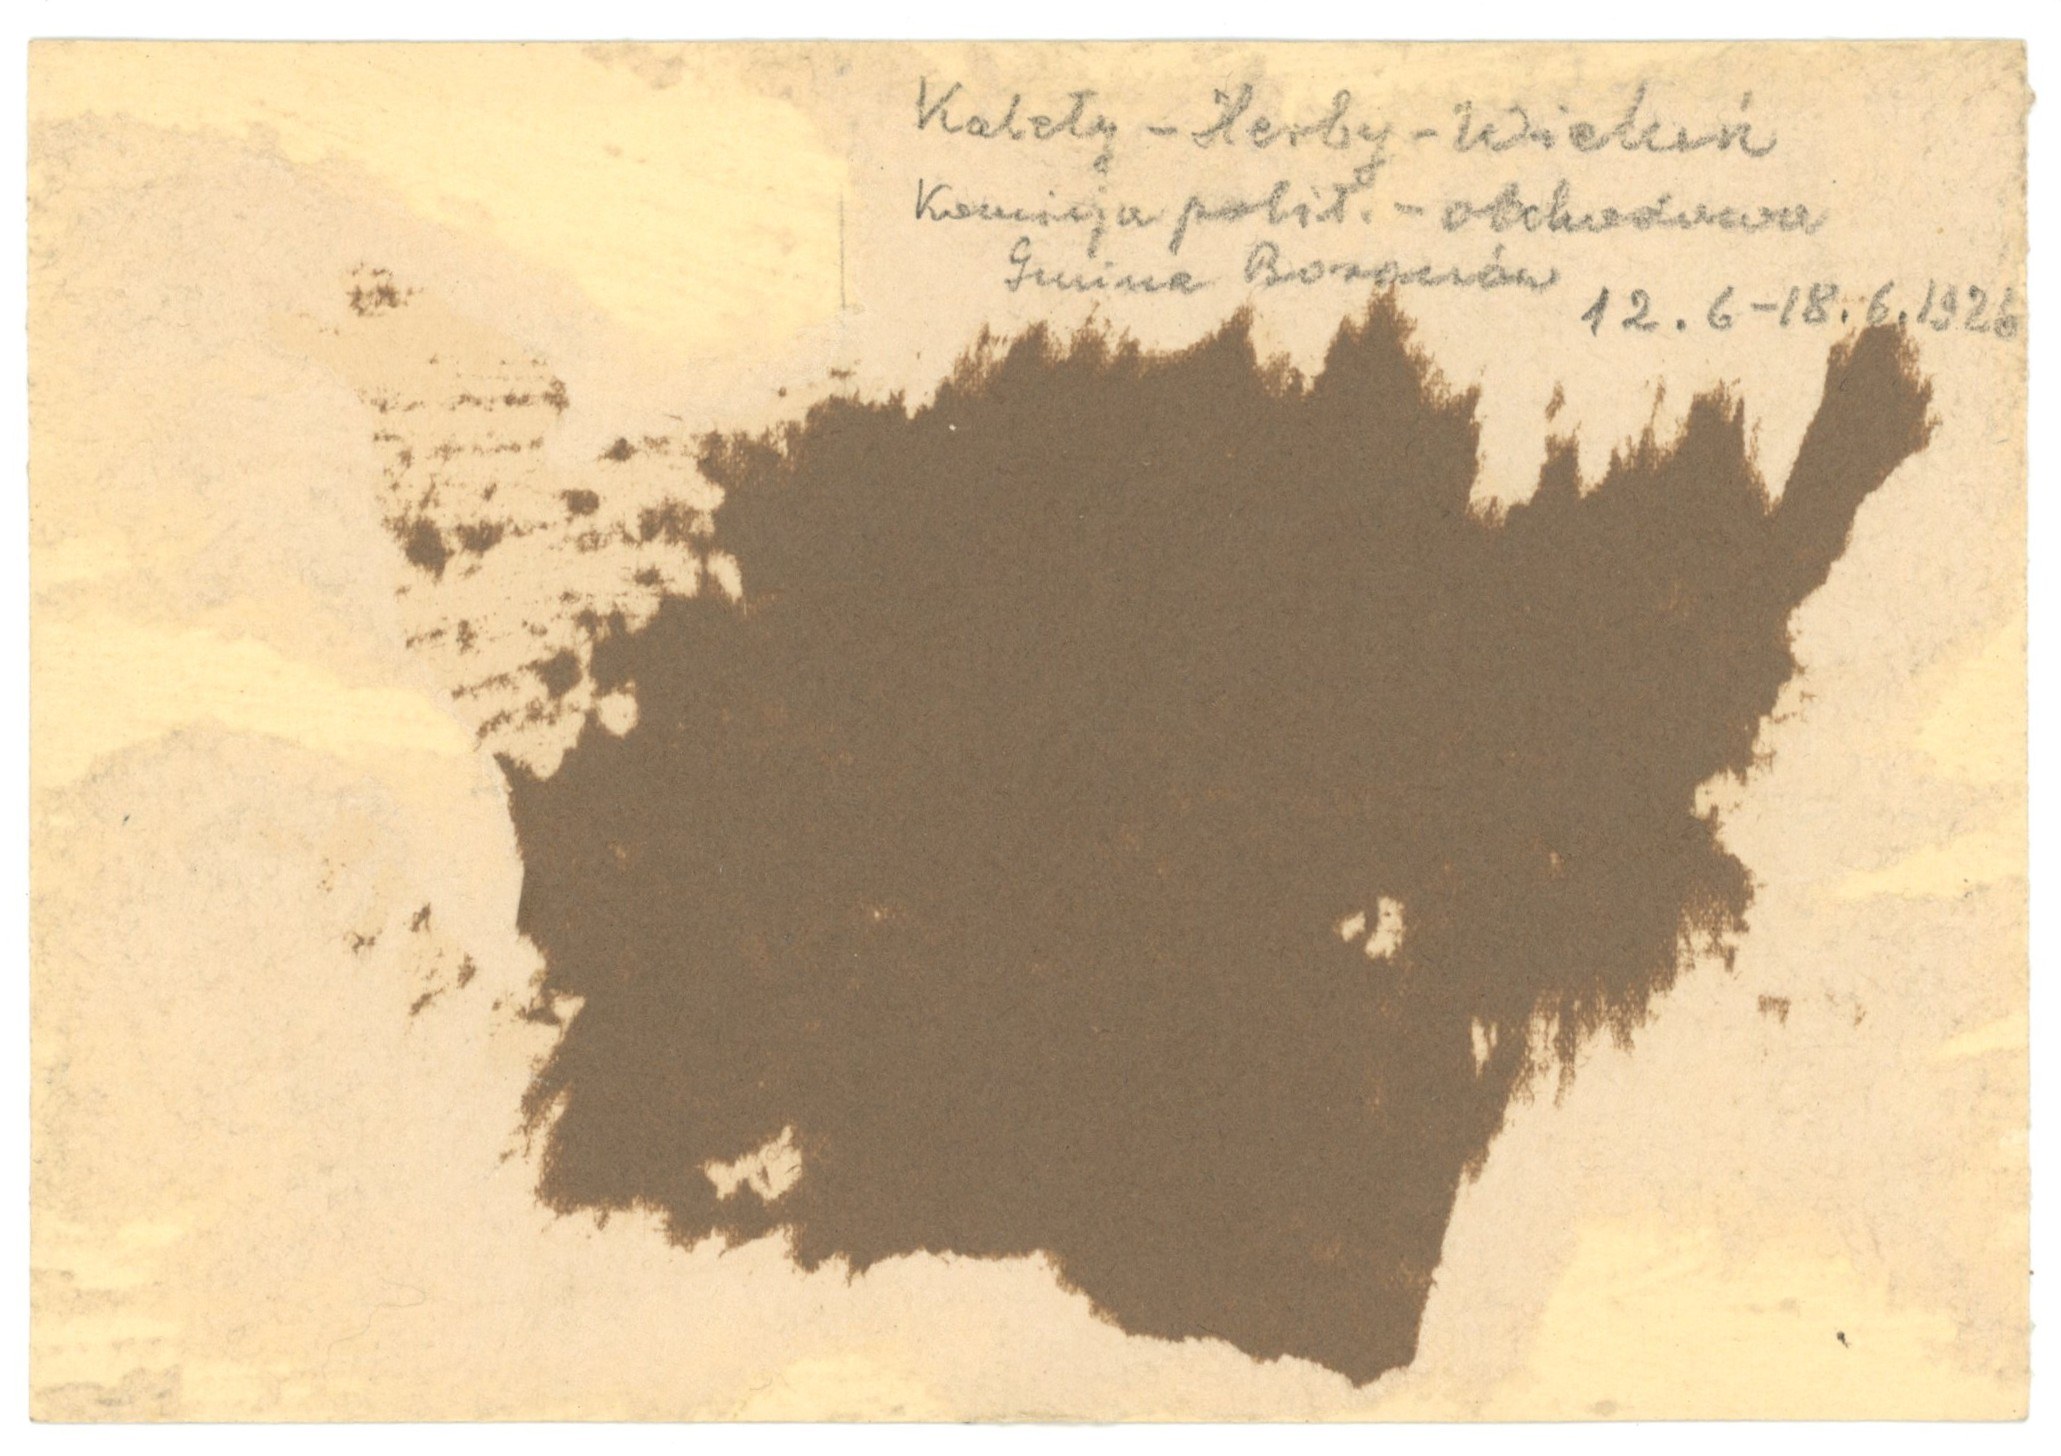 Kalety - Herby - Wieluń
Komisja polit. - obchodowa
Gmina
12. 6 - 18. 6. 1926